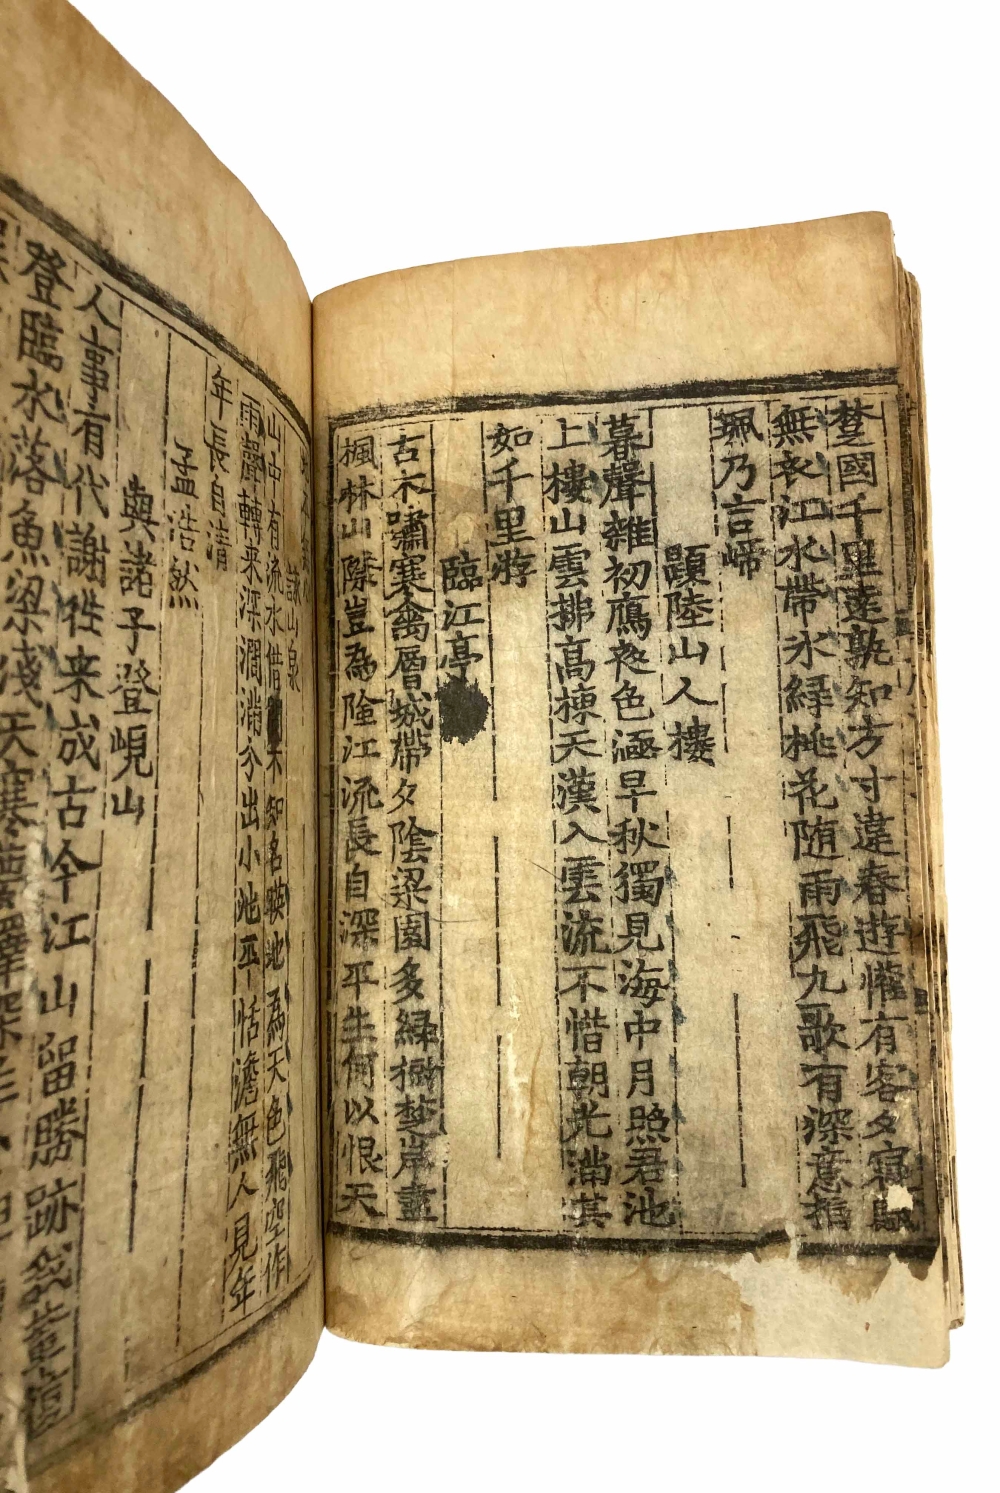 楚國千里遠孰知方寸違春遊懽有客夕寢賦
無衣江水帶氷緑桃花随雨飛九歌有深意捐
珮乃言歸
題陸山人樓
暮聲雜初鴈夜色涵早秋獨見海中月照君池
上樓山雲拂高棟天漢入雲流不惜朝光滿其
如千里游
臨江亭
古木嘯寒禽層城帶夕陰梁園多緑樹楚岸盡
楓林山際豈為險江流長自深平生何以恨天
詠山泉
山中有流水借不知名映地為天色飛空作
雨聲轉来深澗滿分出小池平恬澹無人見年
年長自清
孟浩然
與諸子登峴山
人事有代謝徃来成古今江山留勝跡我輩復
登臨水落魚梁淺天寒夢澤深